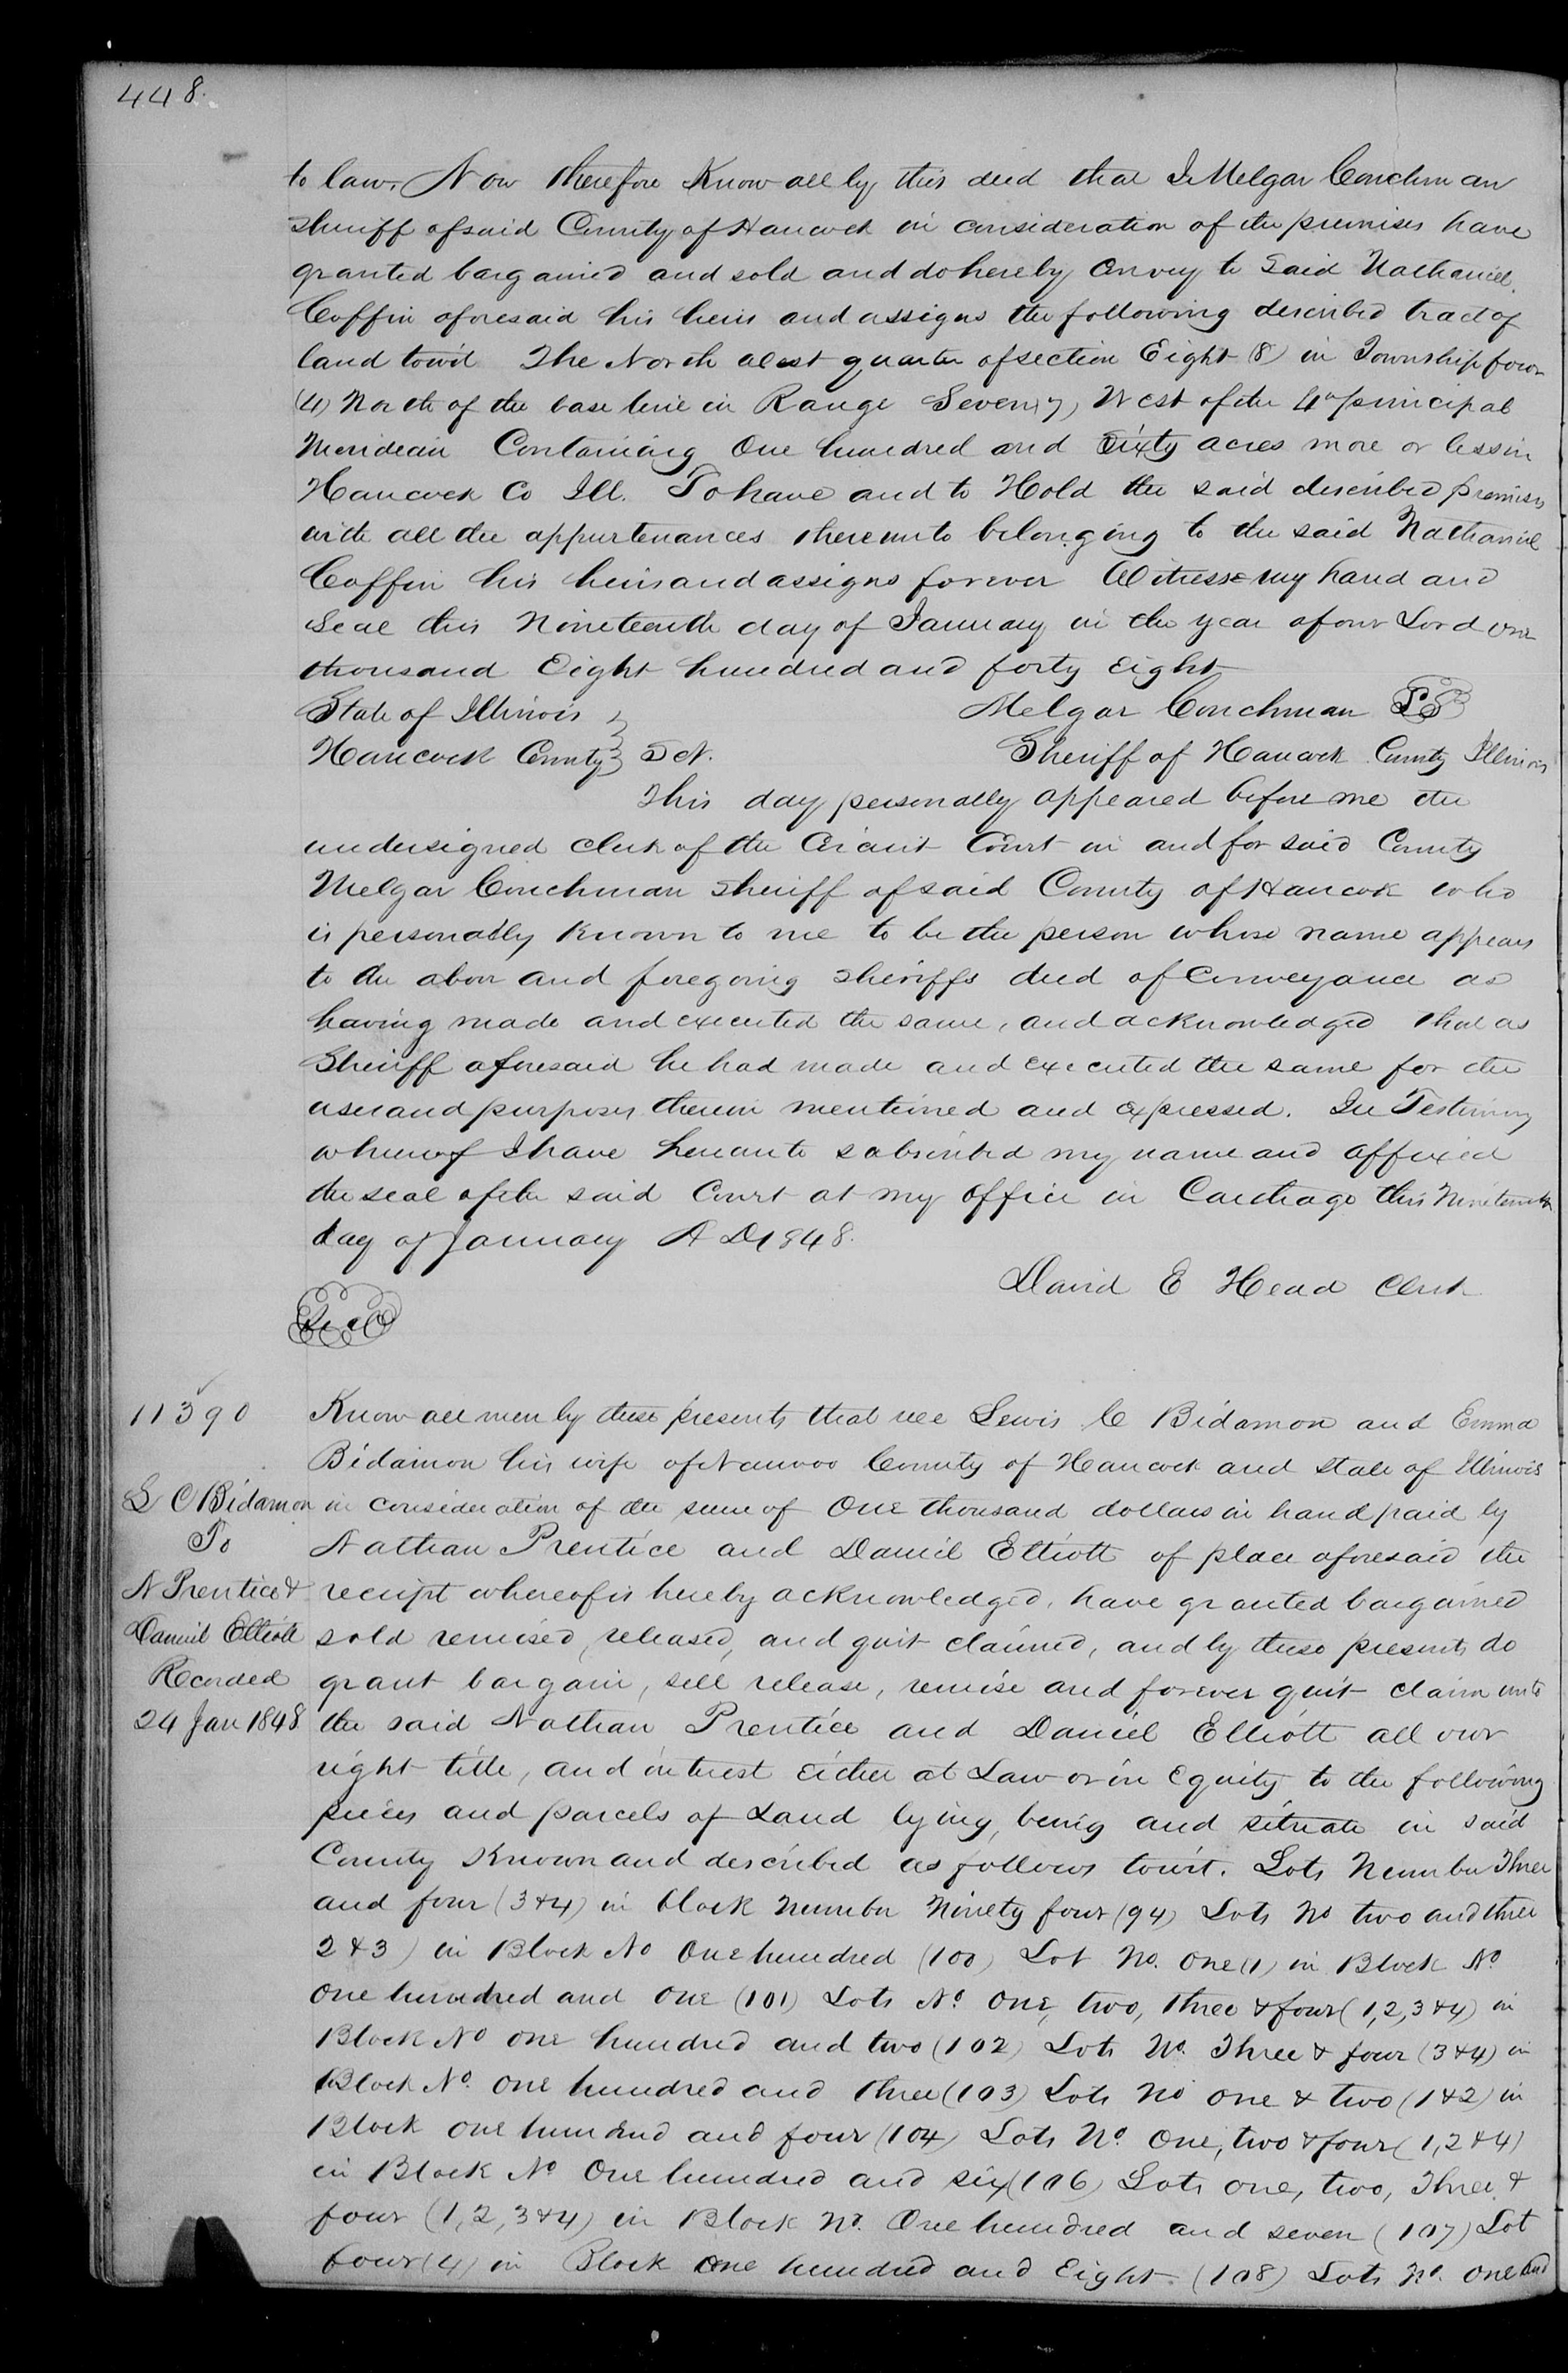 448.
to law. Now therefore Know all by this deed that I Melgar Couchman
Sheriff of said County of Hancock in consideration of the premises have
granted bargained and sold and do hereby convey to Said Nathaniel
Coffin aforesaid his heirs and assigns the following described tract of
land towit The North West quarter of section Eight (8) in Township four
(4) North of the base line in Range Seven (7) West of the 4th principal
Meridian Containing One hundred and Sixty acres more or less in
Hancock Co Ill. To have and to Hold the said described premises
with all the appurtenances thereunto belonging to the said Nathaniel
Coffin his heirs and assigns forever Witness my hand and
Seal this Nineteenth day of January in the year of our Lord one
thousand Eight hundred and forty eight
State of Illinois } Melgar Couchman LS
Hancock County } Sct. Sheriff of Hancock County Illinois
This day personally appeared before me the
undersigned clerk of the Circuit Court in and for said County
Melgar Couchman Sheriff of said County of Hancock who
is personally known to me to be the person whose name appears
to the above and foregoing Sheriffs deed of Conveyance as
having made and executed the same, and acknowledged that as
Sheriff aforesaid he had made and executed the same for the
uses and purposes therein mentioned and expressed. In Testimony
whereof I have hereunto subscribed my name and affixed
the seal of the said Court at my office in Carthage this Nineteenth
day of January A D 1848.
David E Head Clerk
Seal
11390
L C Bidamon
To
N Prentice &
Daniel Elliott
Recorded
24 Jan 1848
Know all men by these presents that we Lewis C Bidamon and Emma
Bidamon his wife of Nauvoo County of Hancock and State of Illinois
in consideration of the sum of One thousand dollars in hand paid by
Nathan Prentice and Daniel Elliott of place aforesaid the
receipt whereof is hereby acknowledged, have granted bargained
sold remised, released, and quit claimed, and by these presents do
grant bargain, sell release, remise and forever quit claim unto
the said Nathan Prentice and Daniel Elliott all our
right title, and interest either at Law or in Equity to the following
pieces and parcels of Land lying, being and situate in said
County Known and described as follows towit. Lots Number Three
and four (3&4) in block Number Ninety four (94) Lots No two and three
2&3) in Block No One hundred (100) Lot No. One (1) in Block No
One hundred and One (101) Lots No. One, two, three & four (1,2,3&4) in
Block No one hundred and two (102) Lots No. Three & four (3&4) in
Block No. One hundred and three (103) Lots No one & two (1&2) in
Block one hundred and four (104) Lots No. One, two & four (1,2&4)
in Block No One hundred and six (106) Lots one, two, Three &
four (1,2,3&4) in Block No. One hundred and seven (107) Lot
four (4) in Block One hundred and Eight (108) Lots No. one and